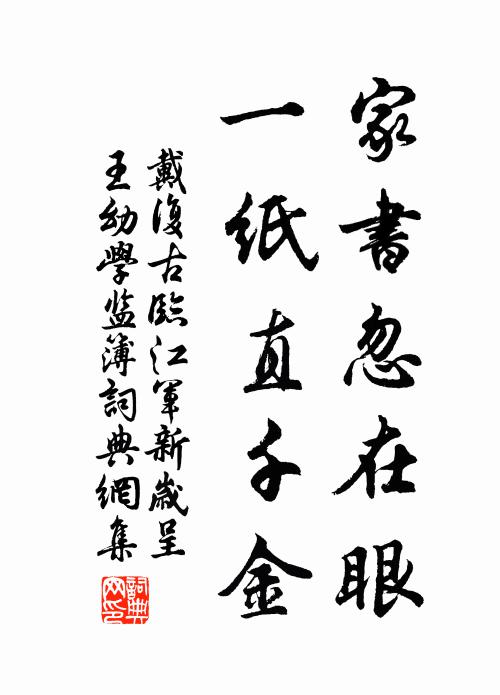 家書忽在眼
一紙直千金
戴復古臨江軍新歲呈
王幼學監簿詞典網集
詞典網印